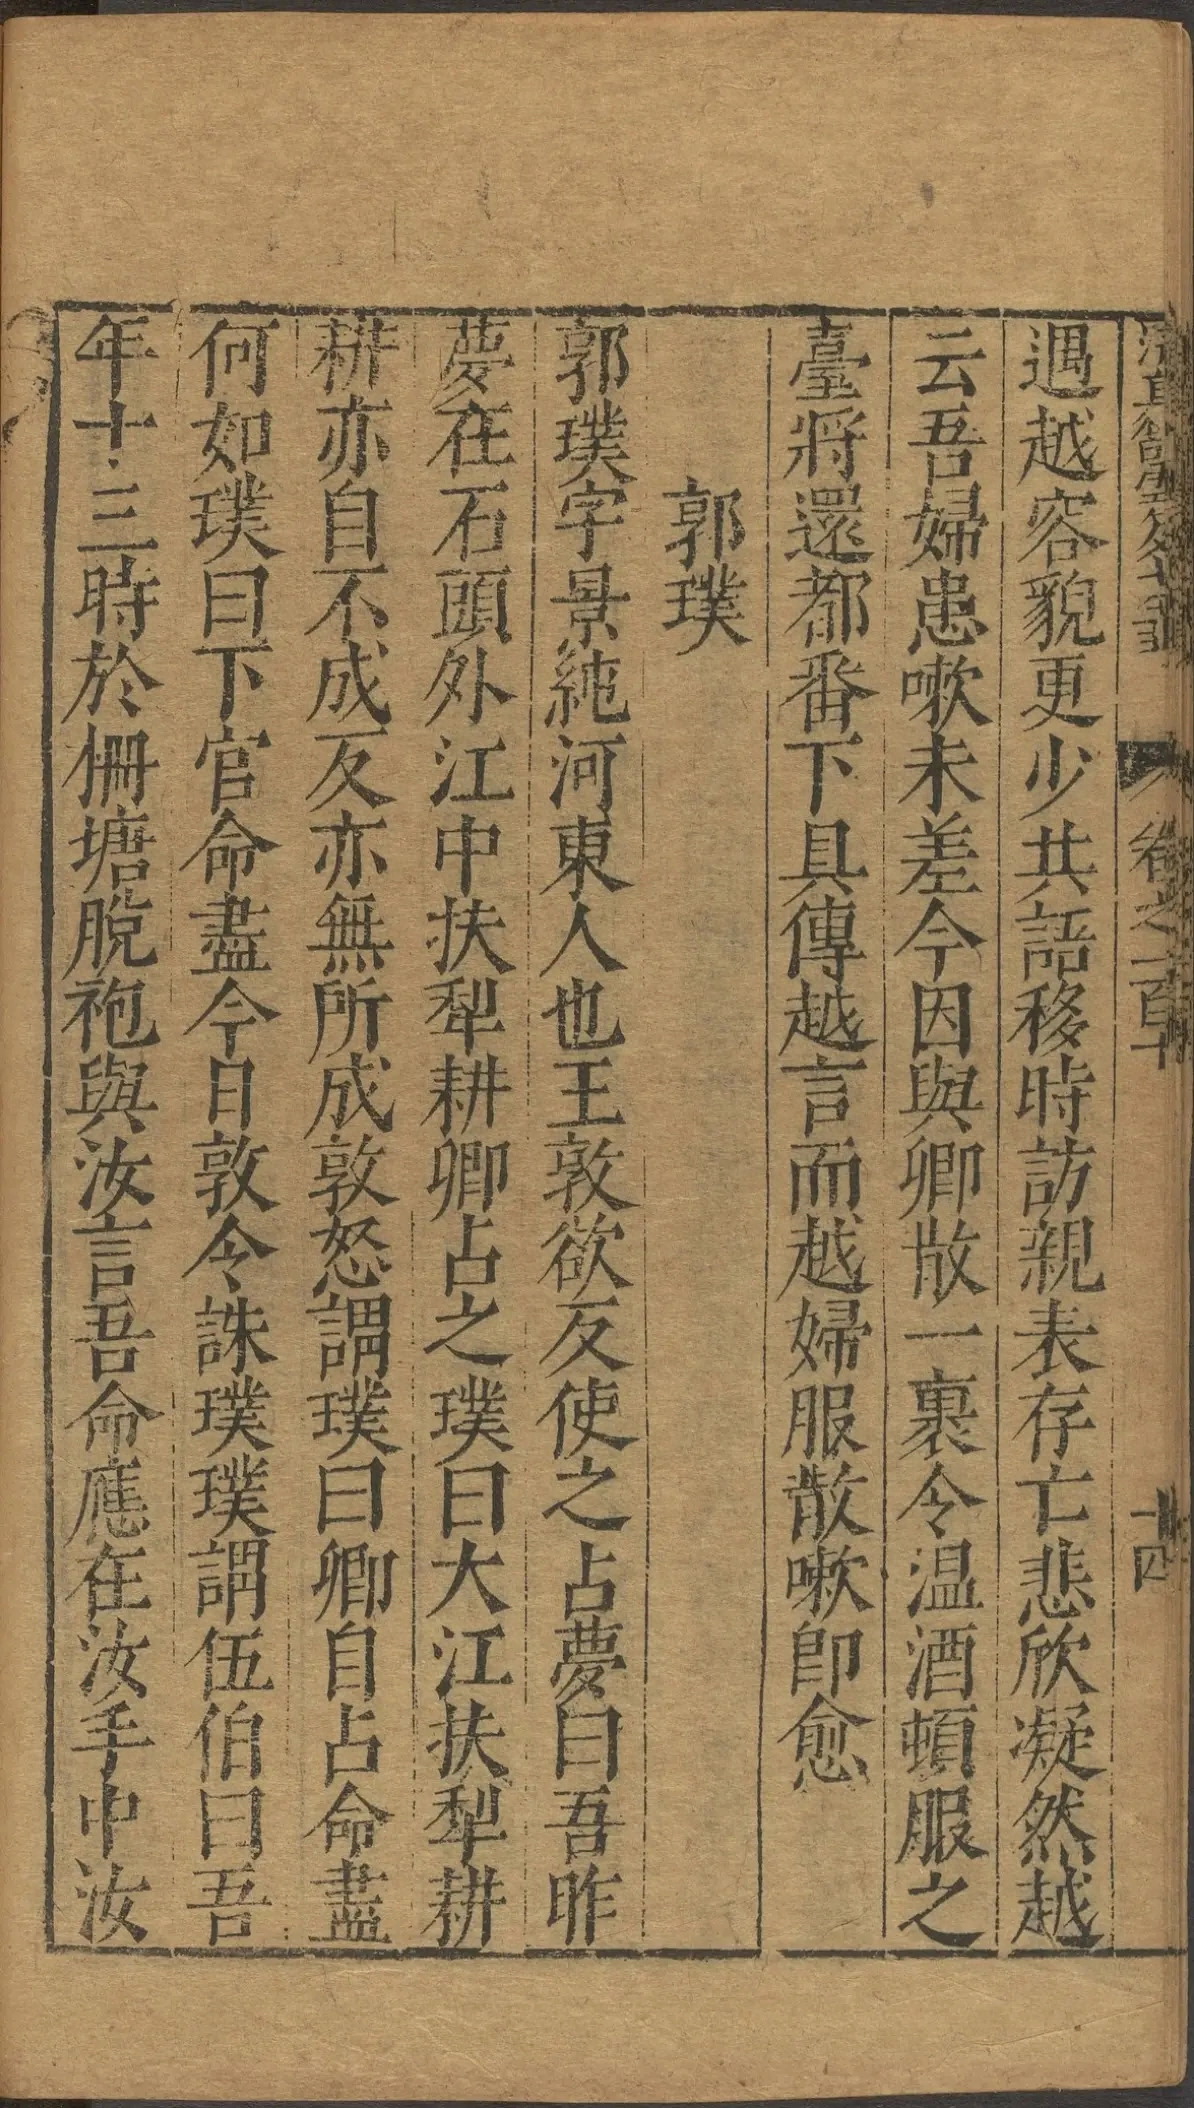 卷之一百十
十四
遇越容貌更少共語移時訪親表存亡悲欣凝然越
云吾婦患嗽未差今因與卿散一裹令温酒頓服之
臺將還都番下具傳越言而越婦服散嗽即愈
郭璞
郭璞字景純河東人也王敦欲反使之占夢曰吾昨
夢在石頭外江中扶犁耕卿占之璞曰大江扶犁耕
耕亦自不成反亦無所成敦怒謂璞曰卿自占命盡
何如璞曰下官命盡今日敦令誅璞璞謂伍伯曰吾
年十三時於柵塘脫袍與汝言吾命應在汝手中汝